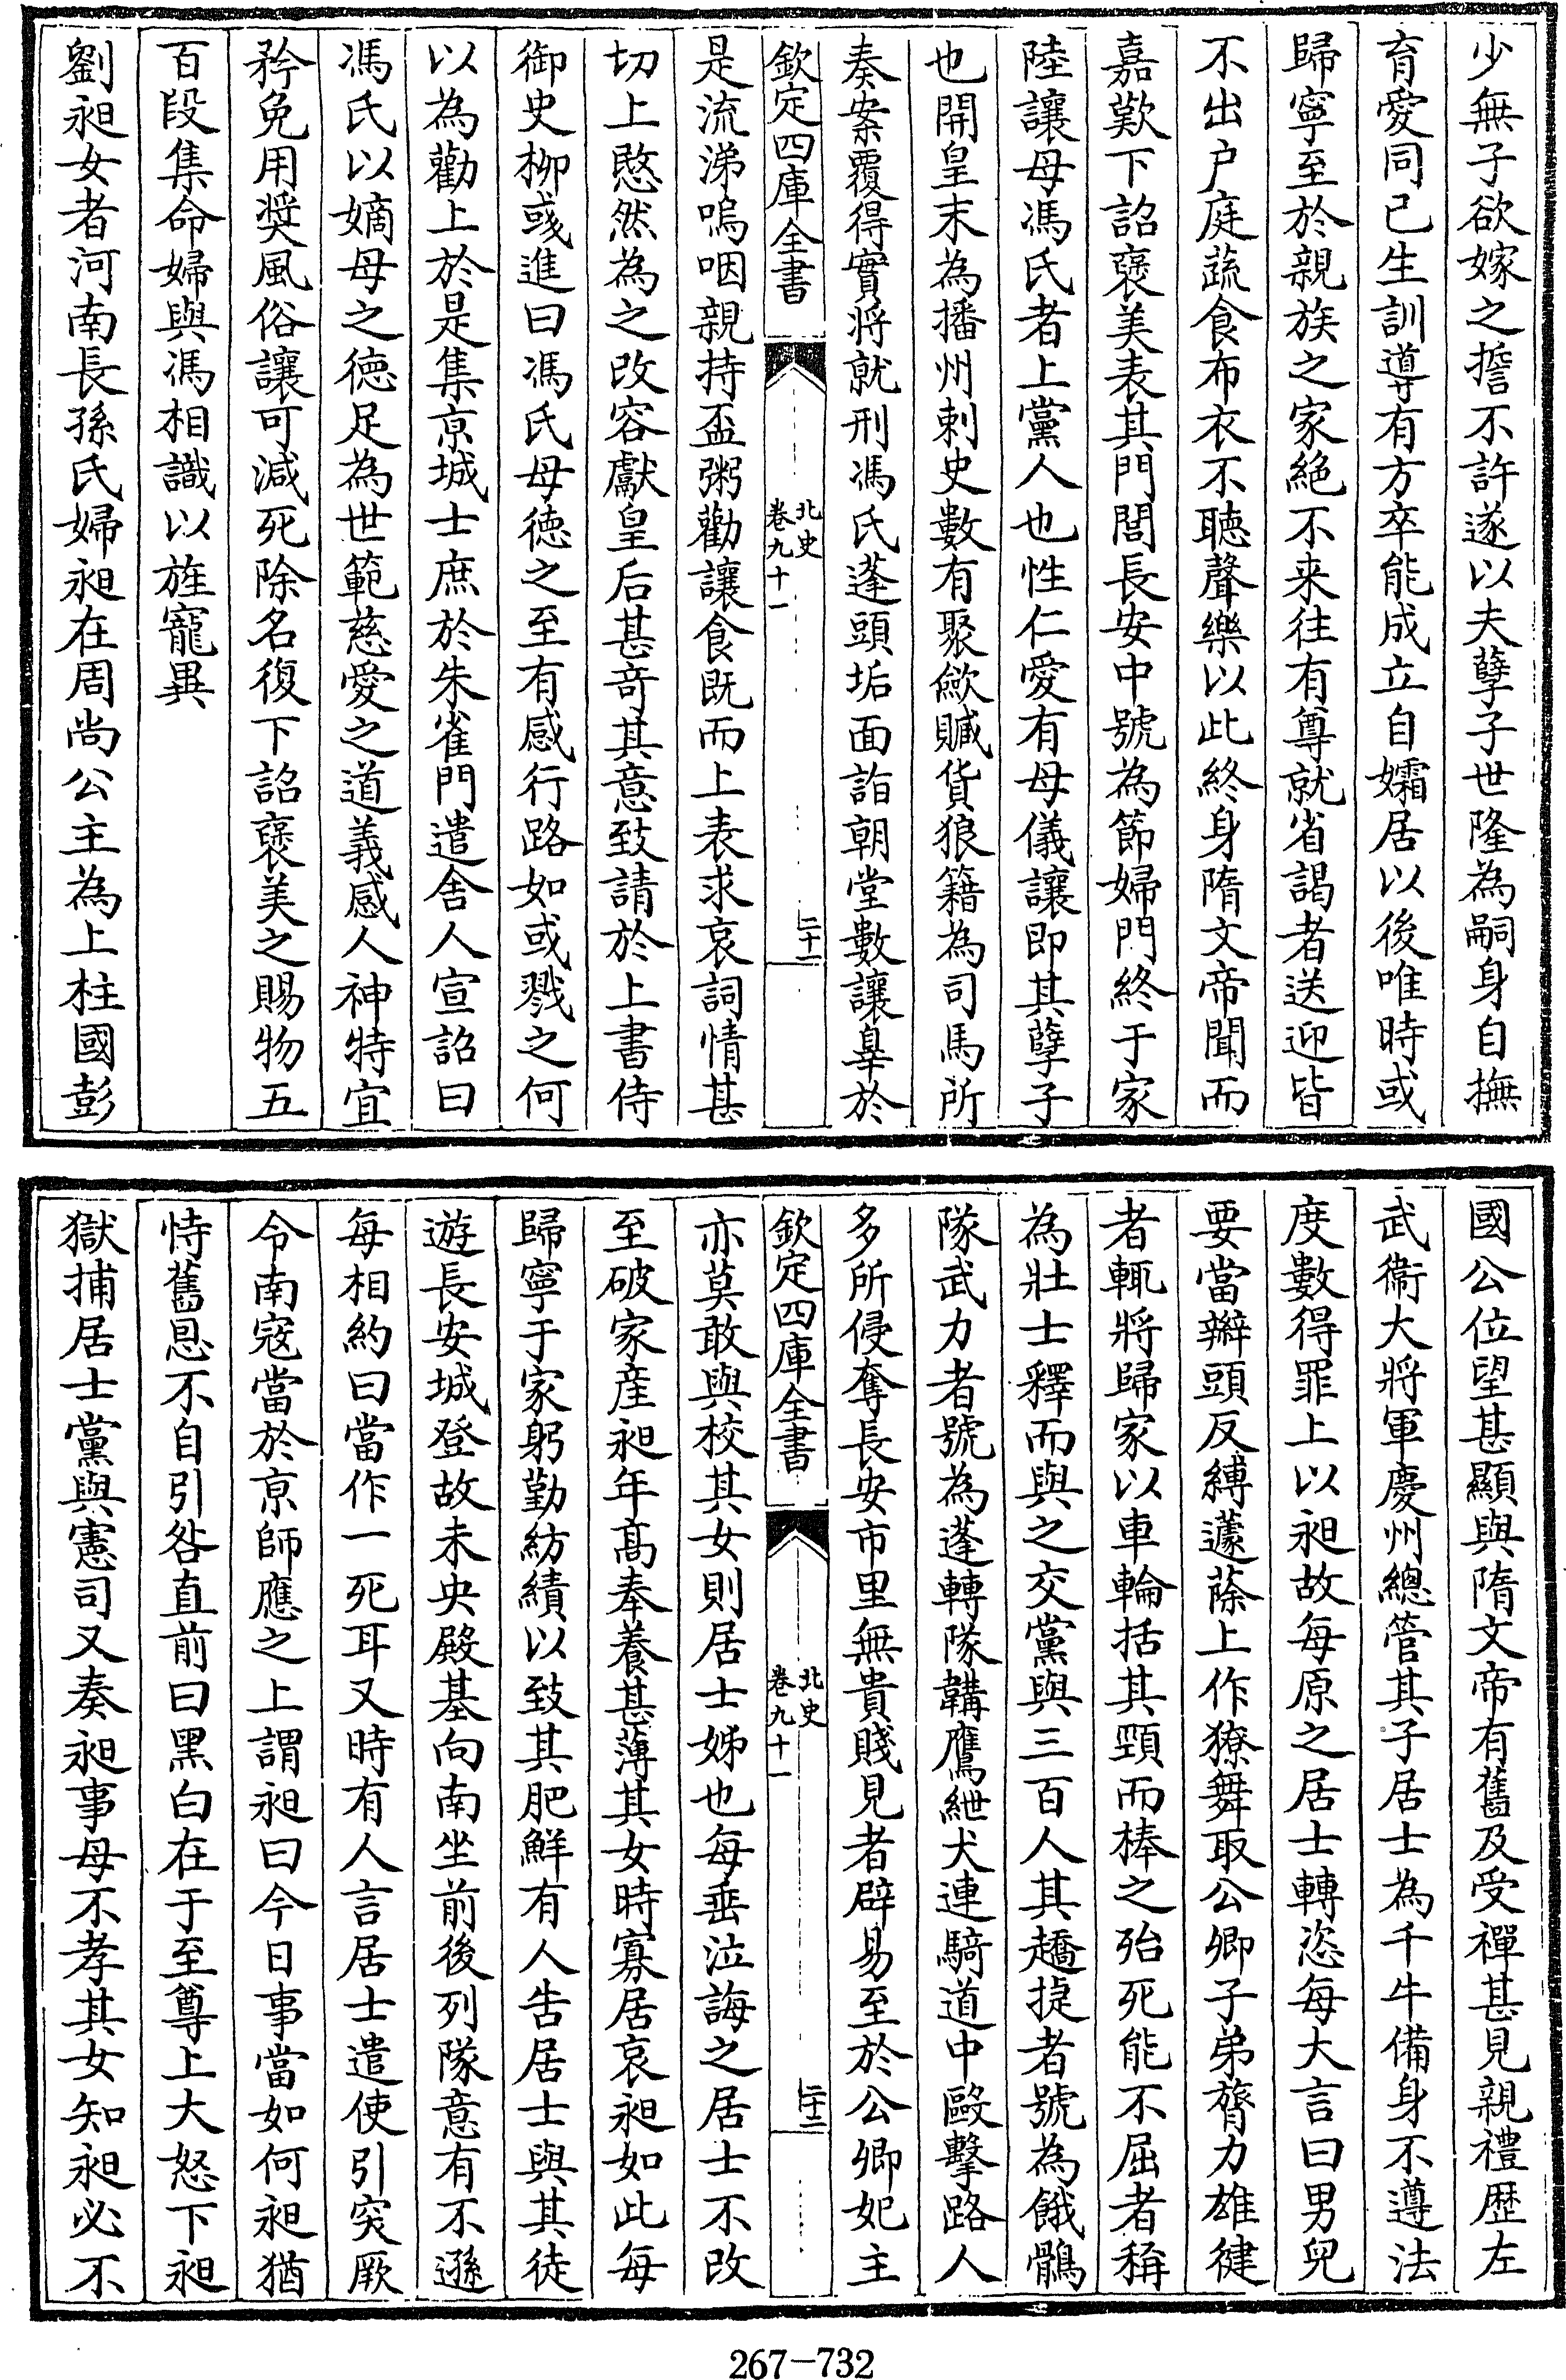 少無子欲嫁之擔不許遂以夫孽子世隆為嗣身自撫
育愛同己生訓導有方卒能成立自孀居以後唯時或
歸寧至於親族之家絕不来往有尊就省謁者送迎皆
不出户庭蔬食布衣不聽聲樂以此終身隋文帝聞而
嘉歎下詔褒美表其門閭長安中號為節婦門終于家
陸讓母馮氏者上黨人也性仁愛有母儀讓即其孽子
也開皇末為播州刺史數有聚歛贓貨狼籍為司馬所
奏案覆得實将就刑馮氏蓬頭垢面詣朝堂數讓辠於
欽定四庫全書
北史
卷九十一
二十一
是流涕嗚咽親持盃粥勸讓食既而上表求哀詞情甚
切上愍然為之改容獻皇后甚奇其意致請於上書侍
御史柳彧進曰馮氏母徳之至有感行路如或戮之何
以為勸上於是集京城士庶於朱雀門遣舍人宣詔曰
馮氏以嫡母之徳足為世範慈愛之道義感人神特宜
矜免用奨風俗讓可減死除名復下詔褒美之賜物五
百段集命婦與馮相識以旌寵異
劉昶女者河南長孫氏婦昶在周尚公主為上柱國彭
國公位望甚顯與隋文帝有舊及受禪甚見親禮歴左
武衞大將軍慶州總管其子居士為千牛備身不遵法
度數得罪上以昶故每原之居士轉恣每大言曰男兒
要當辮頭反縛蘧蒢上作獠舞取公卿子弟膂力雄健
者輒將歸家以車輪括其頸而棒之殆死能不屈者稱
為壯士釋而與之交黨與三百人其趫捷者號為餓鶻
隊武力者號為蓬轉隊韝鷹紲犬連騎道中毆擊路人
多所侵奪長安市里無貴賤見者辟易至於公卿妃主
欽定四庫全書
北史
卷九十一
二十二
亦莫敢與校其女則居士姊也每垂泣誨之居士不改
至破家産昶年髙奉養甚薄其女時寡居哀昶如此每
歸寧于家躬勤紡績以致其肥鮮有人告居士與其徒
遊長安城登故未央殿基向南坐前後列隊意有不遜
每相約曰當作一死耳又時有人言居士遣使引突厥
令南宼當於京師應之上謂昶曰今日事當如何昶猶
恃舊恩不自引咎直前曰黑白在于至尊上大怒下昶
獄捕居士黨與憲司又奏昶事母不孝其女知昶必不
267-732